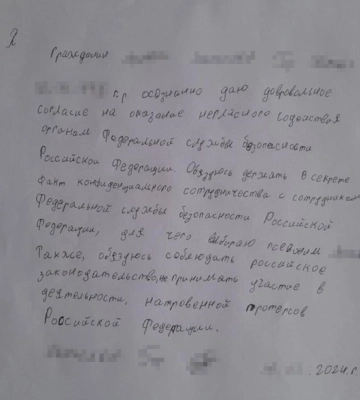 Я
Гражданин
г.р осознанно даю добровольное
согласие на оказание негласного содействия
органам Федеральной службы безопасности
Российской Федерации. Обязуюсь держать в секрете
факт конфиденциального сотрудничества с сотрудниками
Федеральной службы безопасности Российской
Федерации, для чего выбираю псевдоним
Также, обязуюсь соблюдать российское
законодательство, не принимать участие в
деятельности, напровенной протеров
Российской Федерации.
2024 г.